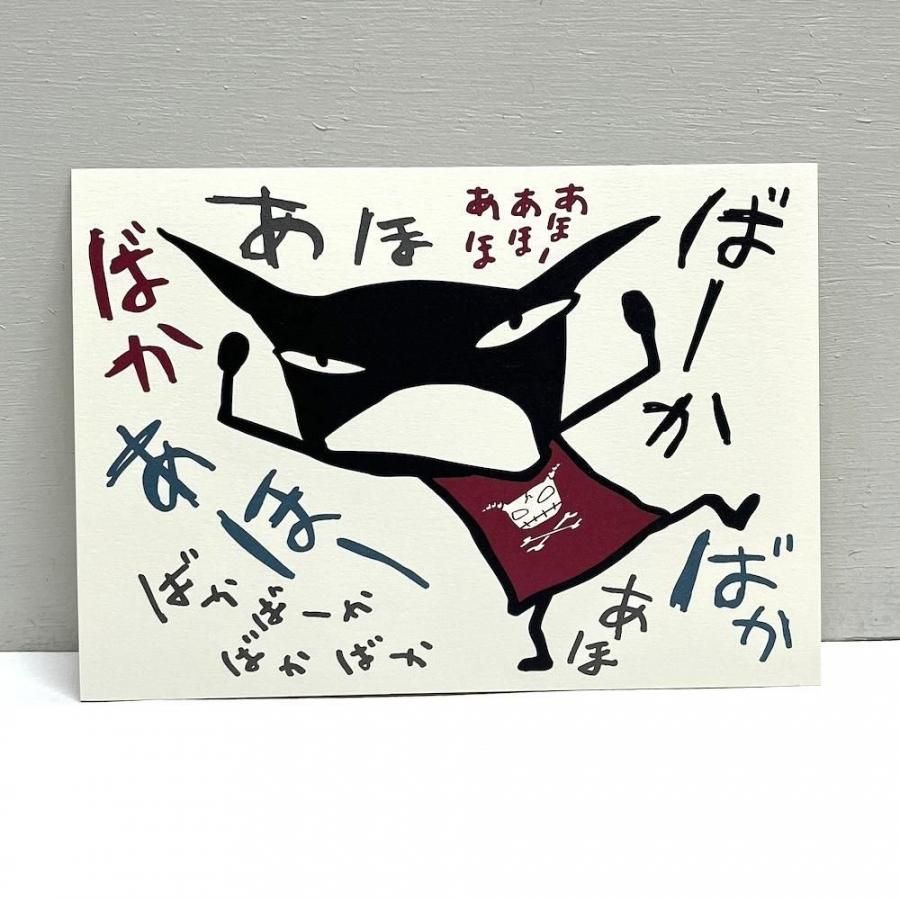 ばか
あほ
あほ
あほー
あほー
ばーか
あほー
ばか
ばーか
ばか
ばか
あほ
ばか